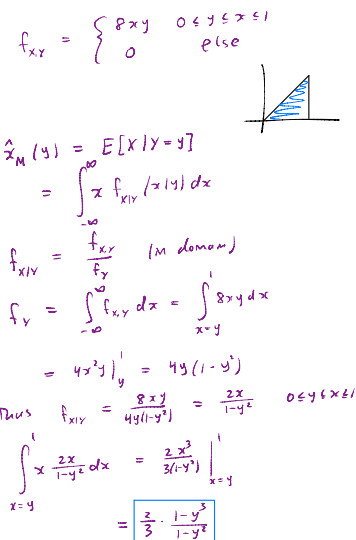 f_{X,Y} = { 8xy 0 ≤ y ≤ x ≤ 1
0 else
x̂_M(y) = E[X|Y=y]
= ∫_{-∞}^{∞} x f_{X|Y}(x|y) dx
f_{X|Y} = f_{X,Y} / f_Y (in domain)
f_Y = ∫_{-∞}^{∞} f_{X,Y} dx = ∫_{x=y}^{1} 8xy dx
= 4x²y |_y^1 = 4y(1-y²)
Thus f_{X|Y} = 8xy / 4y(1-y²) = 2x / 1-y² 0 ≤ y ≤ x ≤ 1
∫_{x=y}^{1} x 2x / 1-y² dx = 2x³ / 3(1-y²) |_{x=y}^{1}
= 2/3 · 1-y³ / 1-y²